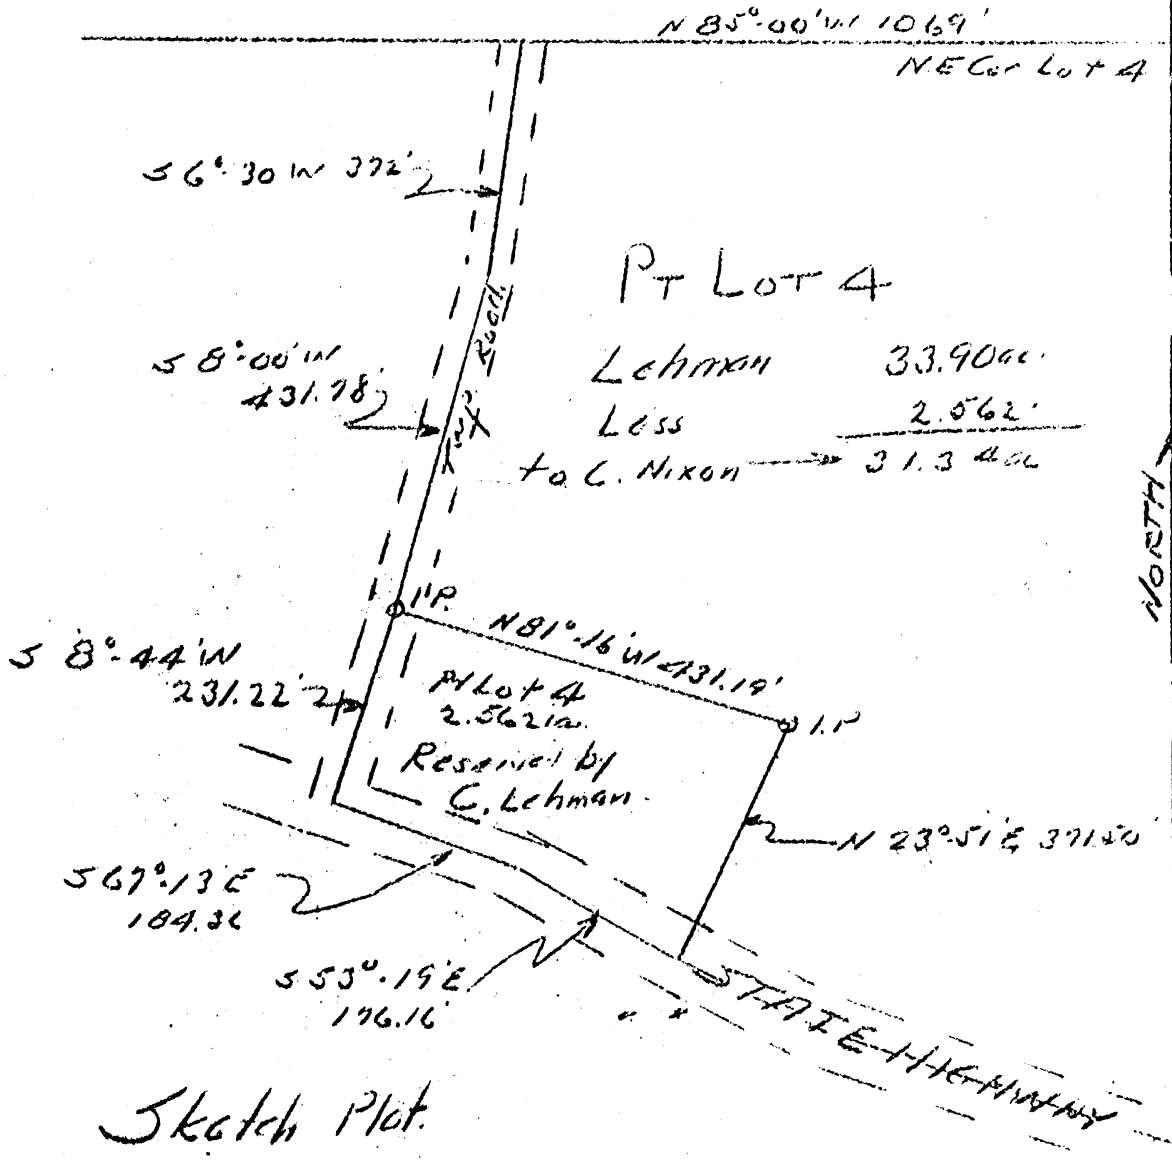 N 85°-00' W 1069'
N E Cor Lot 4
S 6°-30 W 372'
PT LOT 4
S 8°-00' W
431.78'
Twp Road.
Lehman 33.90 ac.
Less 2.562.
to C. Nixon 31.34 ac
NORTH
I.P.
N 81°-16' W 431.19'
S 8°-44' W
231.22'
Pt Lot 4
2.562 a.
I.P
Reserved by
C. Lehman.
N 23°-51' E 371.50'
S 67°-13' E
184.36
S 53°-19' E
176.16'
STATE HIGHWAY
Sketch Plat.